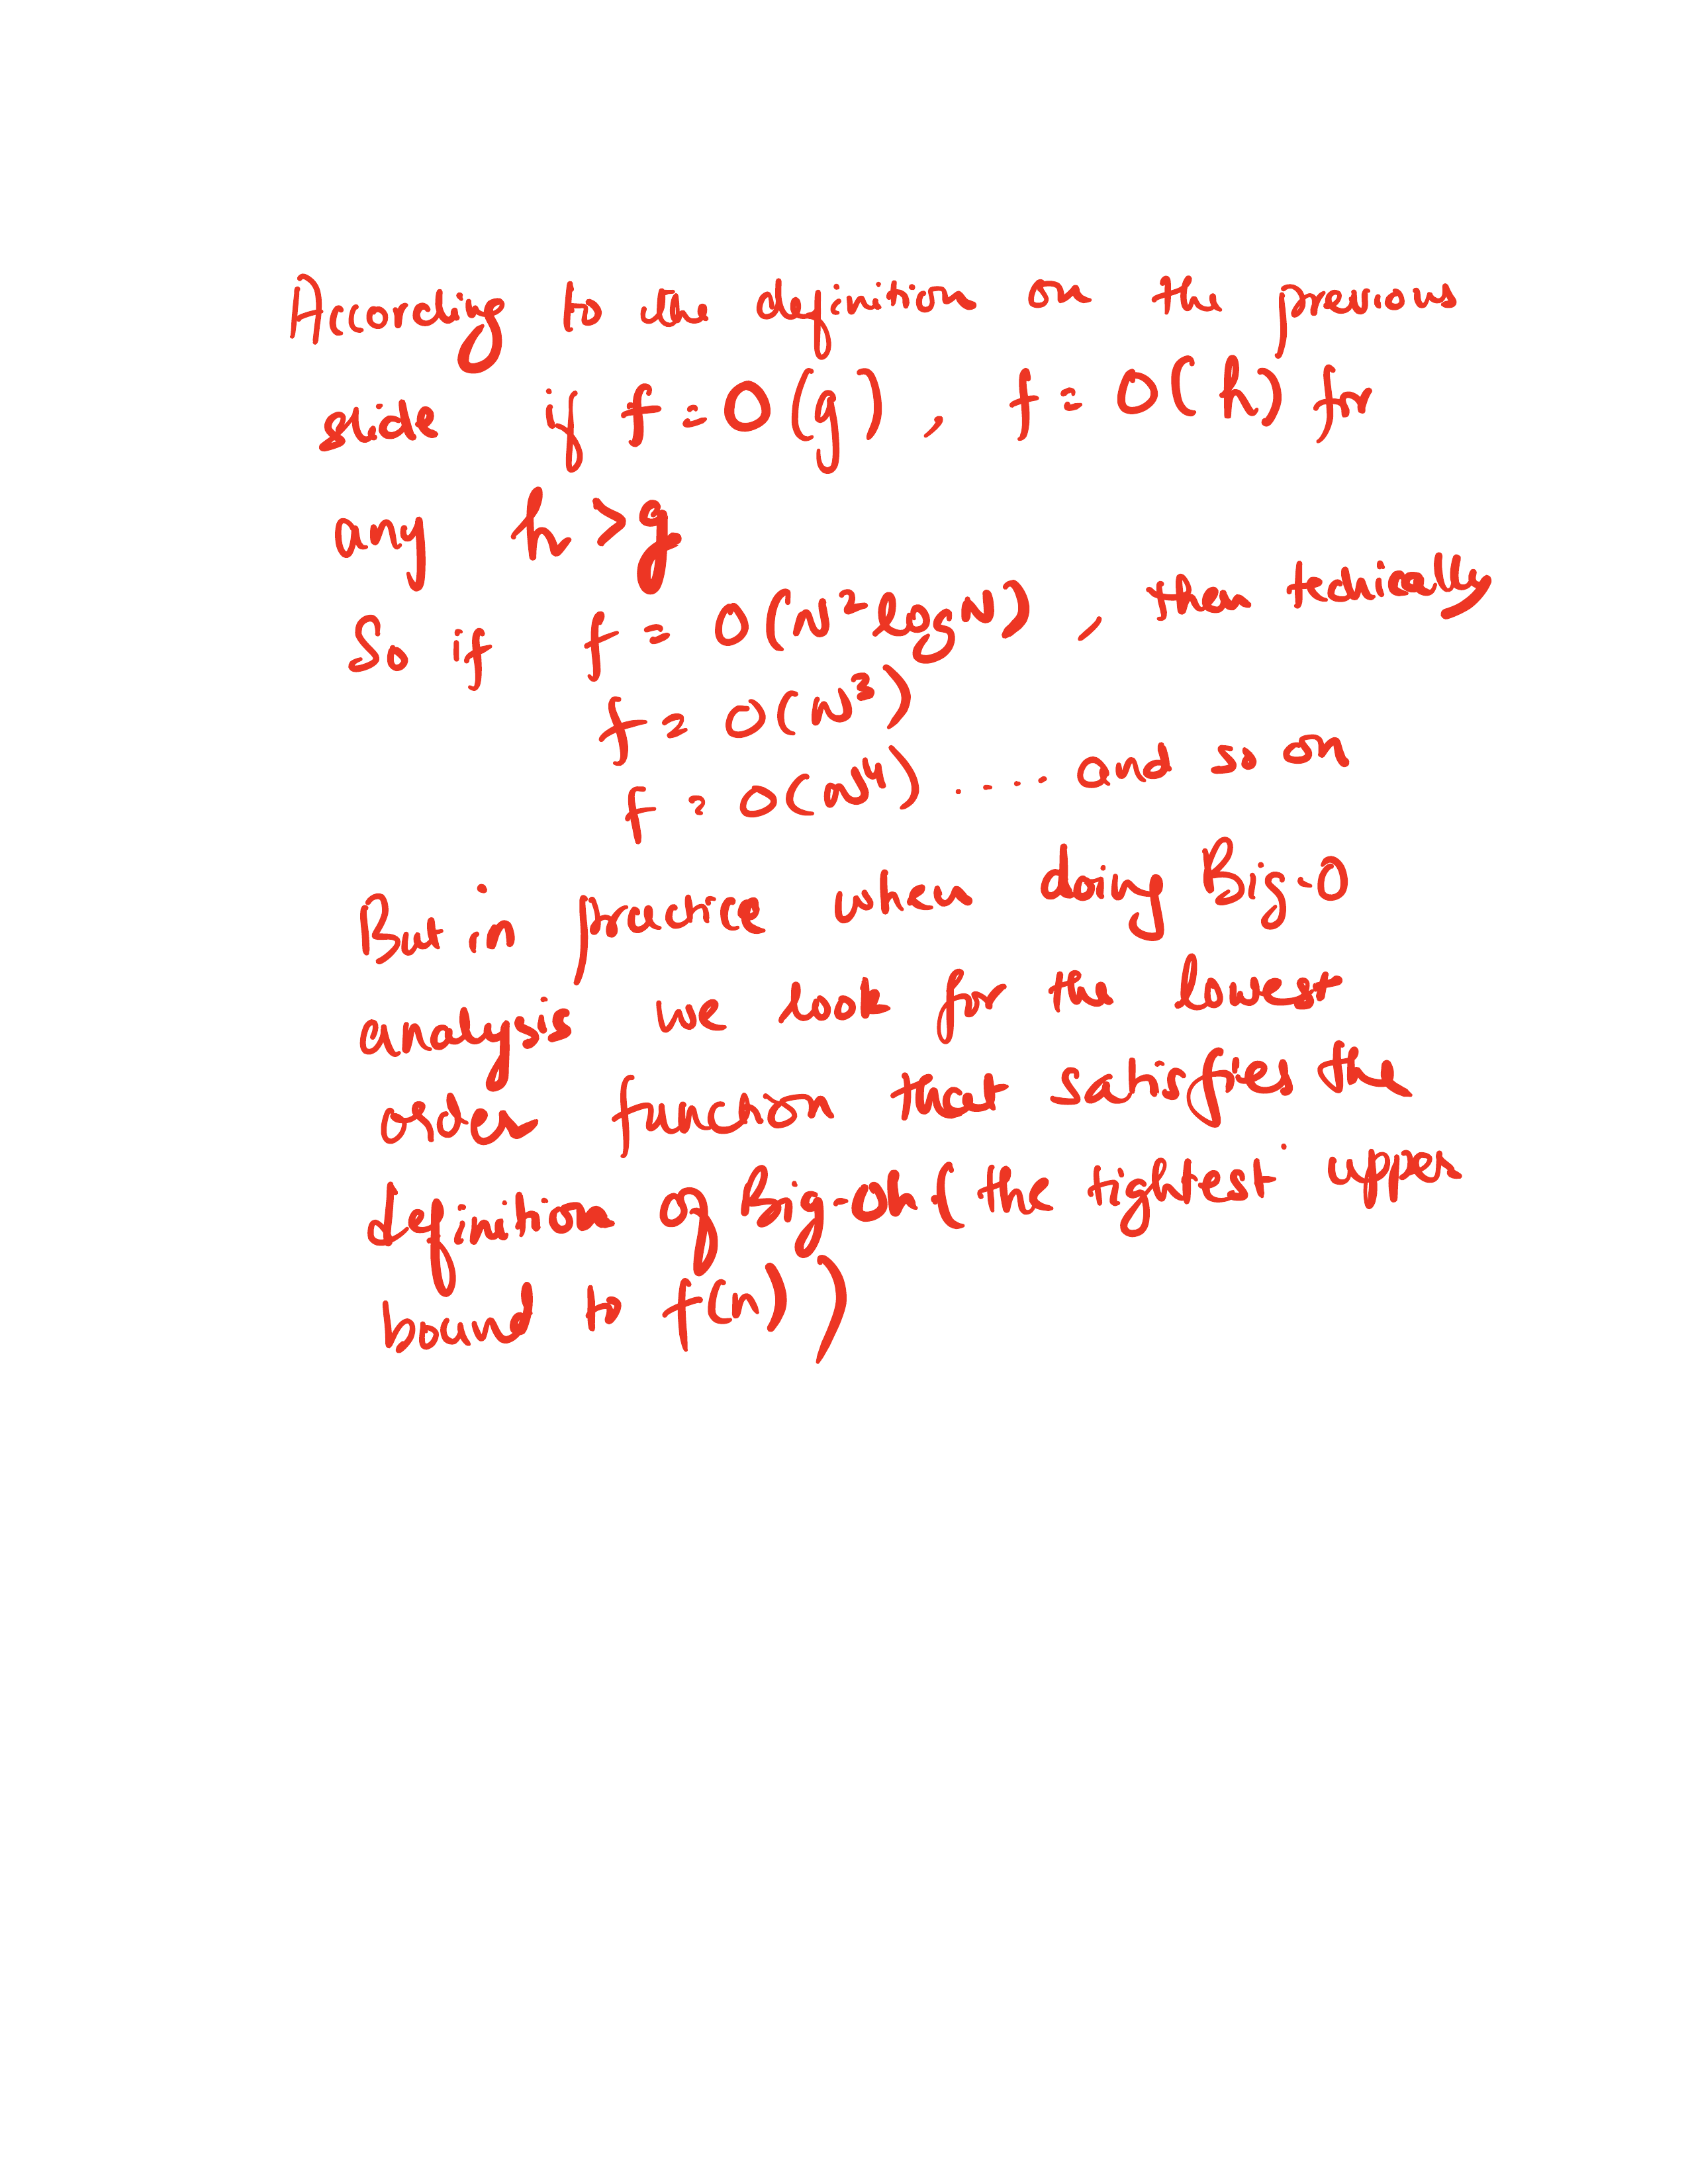 According to the definition on the previous
slide if f = O(g), f = O(h) for
any h > g
So if f = O(N² log N), then techically
f = O(N³)
f = O(N⁴) .... and so on
But in practice when doing Big-O
analysis we look for the lowest
order function that satisfies the
definition of Big-Oh (the tightest upper
bound to f(n))